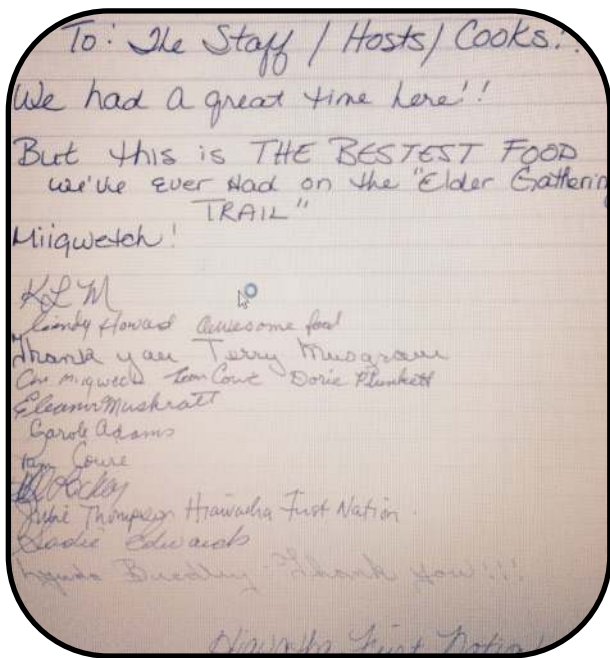 To: The Staff / Hosts / Cooks!!
We had a great time here!!
But this is THE BESTEST FOOD
we've ever had on the "Elder Gathering
TRAIL"
Miigwetch!
KLM
Howard awesome food
Thank you Terry Musgrave
Doris Plunkett
Eleanor Muskratt
Carole Adams
Julie Thompson Hiawatha First Nation
Sadie Edwards
Thank you!!!
Hiawatha First Nation!